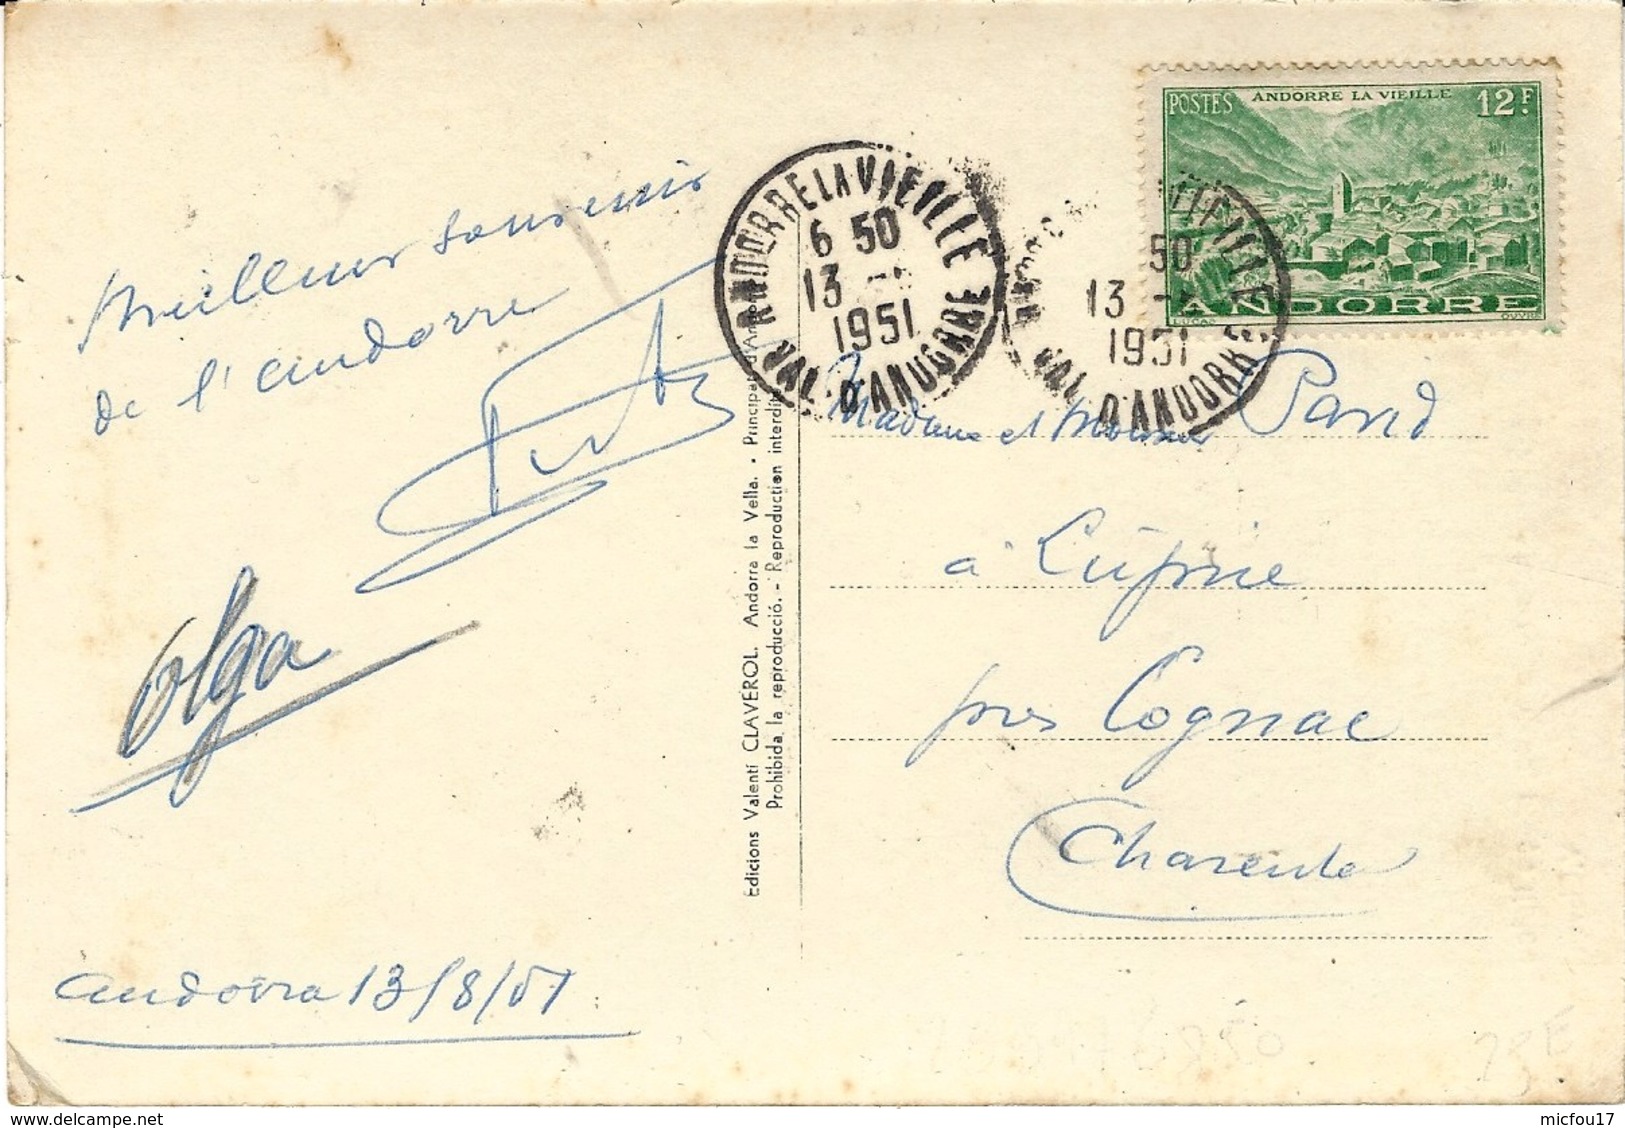 Meilleur souvenir
de l'andorre
Olga
andorra 13/8/51
Edicions Valentí CLAVEROL. Andorra la Vella. • Principat d'Andorra
Prohibida la reproducció. - Reproduction interdite
ANDORRE LA VIEILLE
6 50
13 -
1951
VAL D'ANDORRE
50
13 -
1951
VAL D'ANDORRE
POSTES ANDORRE LA VIEILLE 12F.
ANDORRE
LUCAS OUVRÉ
Madame et Monsieur
à
près Cognac
Charente
delcampe.net
micfou17